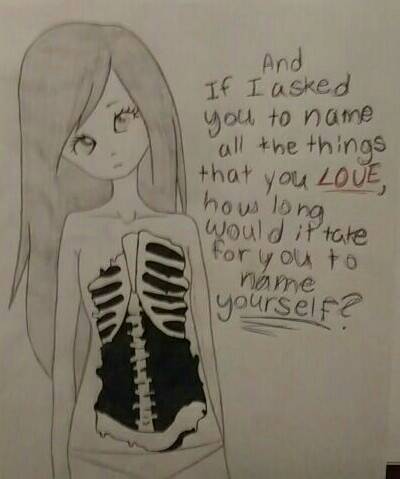 And
If I asked
you to name
all the things
that you LOVE,
how long
would it take
for you to
name
yourself?